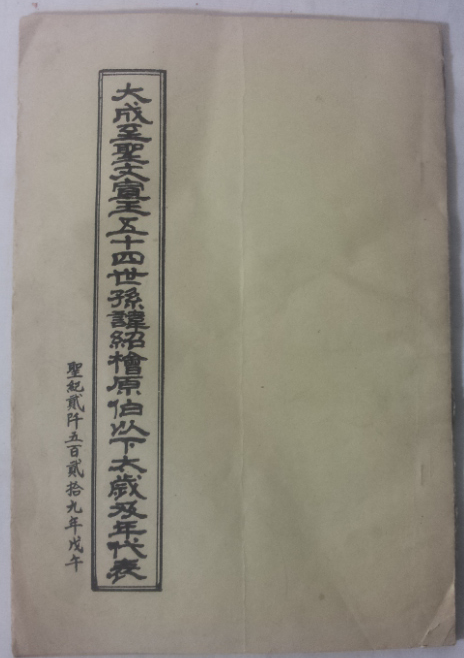 大成至聖文宣王五十四世孫諱紹檜原伯以下太歲及年代表
聖紀貳阡五百貳拾九年戊午